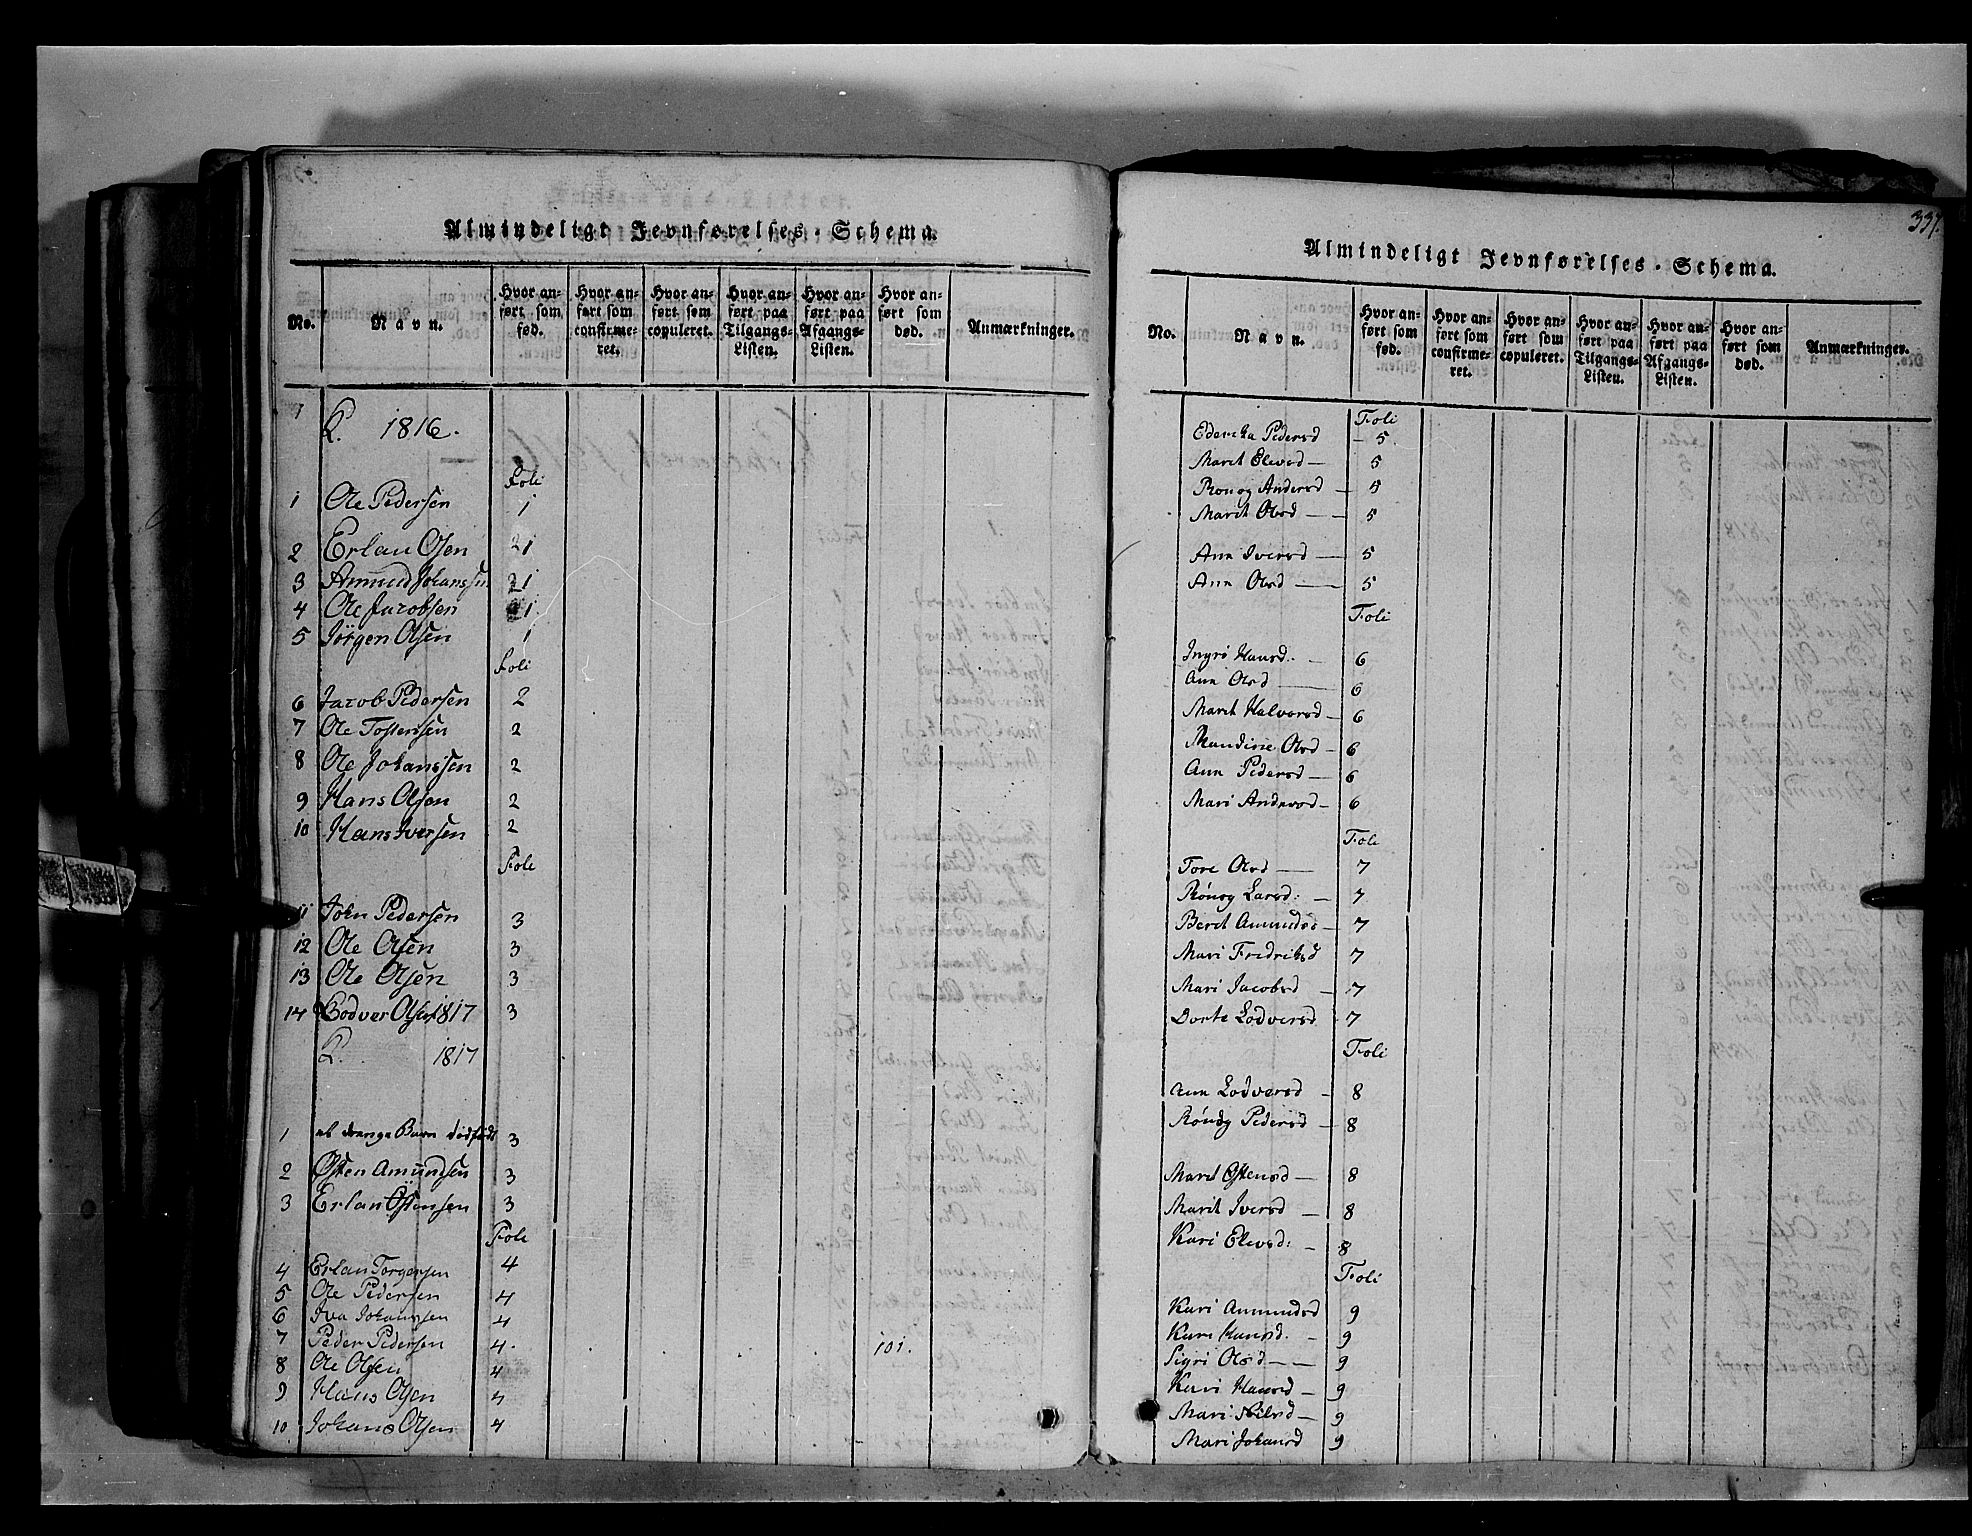 Almindeligt Jevnførelses-Schema.
No. Navn. Hvor anført som fød. Hvor anført som confirmeret. Hvor anført som copuleret. Hvor anført paa Tilgangs-Listen. Hvor anført paa Afgangs-Listen. Hvor anført som død. Anmærkninger.
1816.
Foli
1 Ole Pedersen 1
2 Erlan Olsen 1
3 Amund Johanssen 1
4 Ole Jacobsen 1
5 Jörgen Olsen 1
Foli
6 Jacob Pedersen 2
7 Ole Tostenssen 2
8 Ole Johanssen 2
9 Hans Olsen 2
10 Hans Iversen 2
Foli
11 John Pedersen 3
12 Ole Olsen 3
13 Ole Olsen 3
14 Lodver Olsen 1817 3
1817
1 et drenge Barn dödföd 3
2 Østen Amundsen 3
3 Erlan Östensen 3
Foli
4 Erlan Torgersen 4
5 Ole Pedersen 4
6 Iva Johanssen 4
7 Peder Pedersen 4. 101.
8 Ole Olsen 4
9 Hans Olsen 4
10 Johans Olsen 4
337.
Almindeligt Jevnførelses-Schema.
No. Navn. Hvor anført som fød. Hvor anført som confirmeret. Hvor anført som copuleret. Hvor anført paa Tilgangs-Listen. Hvor anført paa Afgangs-Listen. Hvor anført som død. Anmærkninger.
Foli
Pedersd - 5
Marit Elevsd — 5
Ronog Andersd — 5
Marit Olsd — 5
Ann Iversd — 5
Ann Olsd — 5
Foli
Ingri Hansd. — 6
Ann Olsd — 6
Marit Halvorsd — 6
Olsd - 6
Ann Pedersd — 6
Mari Andersd — 6
Foli
Tore Olsd — 7
Rönog Larsd: — 7
Berit Amundsd — 7
Mari Fredriksd 7
Mari Jacobsd — 7
Dorte Lodversd 7
Foli
Ann Lodversd - 8
Rönog Pedersd — 8
Marit Østensd — 8
Marit Iversd — 8
Kari Elevsd: — 8
Foli
Kari Ammundsd 9
Kari Hansd. - 9
Sigri Olsd — 9
Kari Hansd — 9
Mari Nilsd — 9
Mari Johansd 9